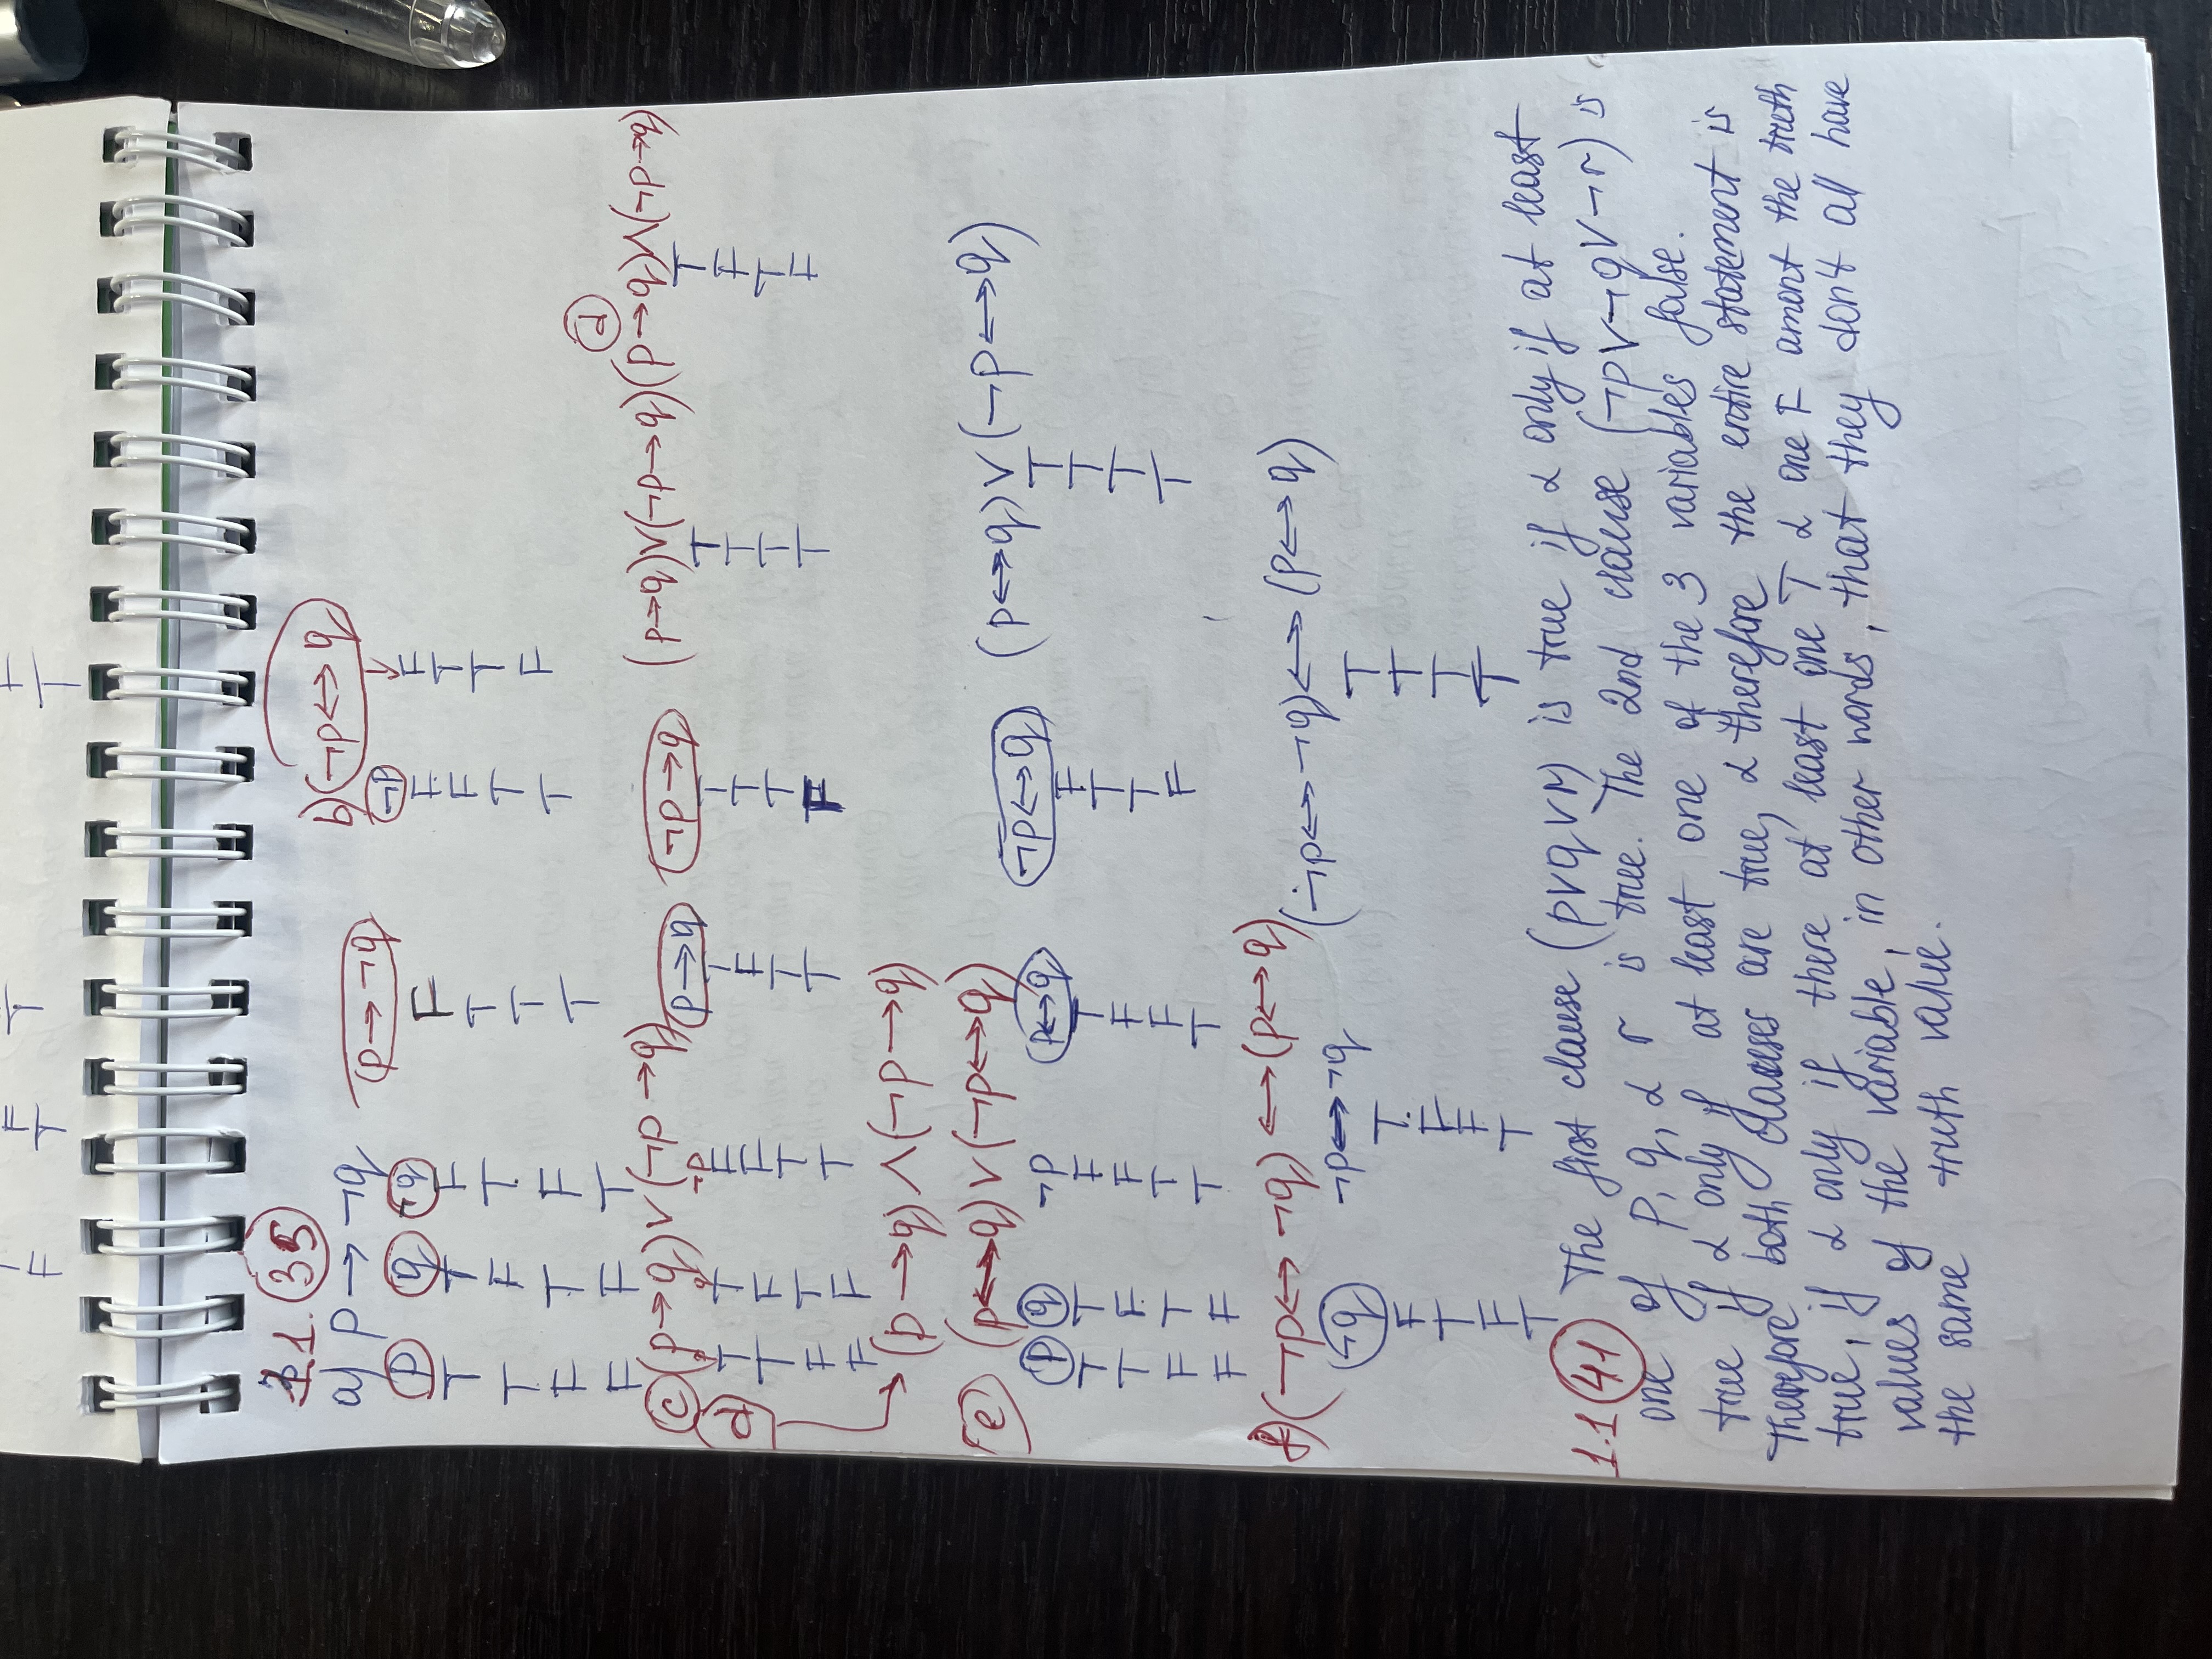 F F T F
F T T
1.1. 35
a) p → ¬q (p → ¬q) b) (¬p ↔ q)
p q ¬q ¬p
T T F F F F
T F T T F T
F T F T T T
F F T T T F
c (p → q) ∨ (¬p → q) p → q ¬p → q (p→q)∨(¬p→q) d (p→q)∧(¬p→q)
d p q ¬p
T T F T T T T
T F F F T T F
F T T T T T T
F F T T F T F
(p → q) ∧ (¬p → q)
e (p↔q) ∨ (¬p↔q)
p q ¬p p↔q ¬p↔q (p↔q) ∨ (¬p↔q)
T T F T F T
T F F F T T
F T T F T T
F F T T F T
f) (¬p↔ ¬q) ↔ (p↔q)
¬q ¬p↔¬q (¬p↔¬q)↔ (p↔q)
F T T
T F T
F F T
T T T
1.1 41 The first clause (p∨q∨r) is true if & only if at least
one of p, q, & r is true. The 2nd clause (¬p∨¬q∨¬r) is
true if & only if at least one of the 3 variables false.
Therefore both clauses are true, & therefore the entire statement is
true, if & only if there at least one T & one F amont the truth
values of the variable, in other words, that they don't all have
the same truth value.